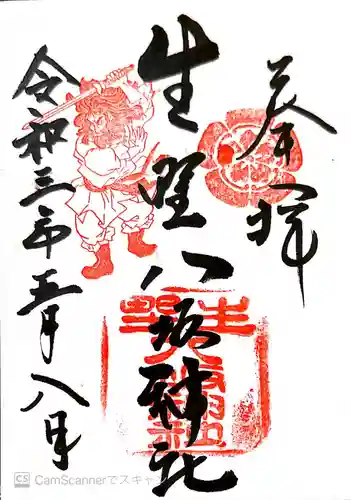 奉拝
生野八坂神社
令和三年五月八日
生野
八坂神社
CS CamScannerでスキャン